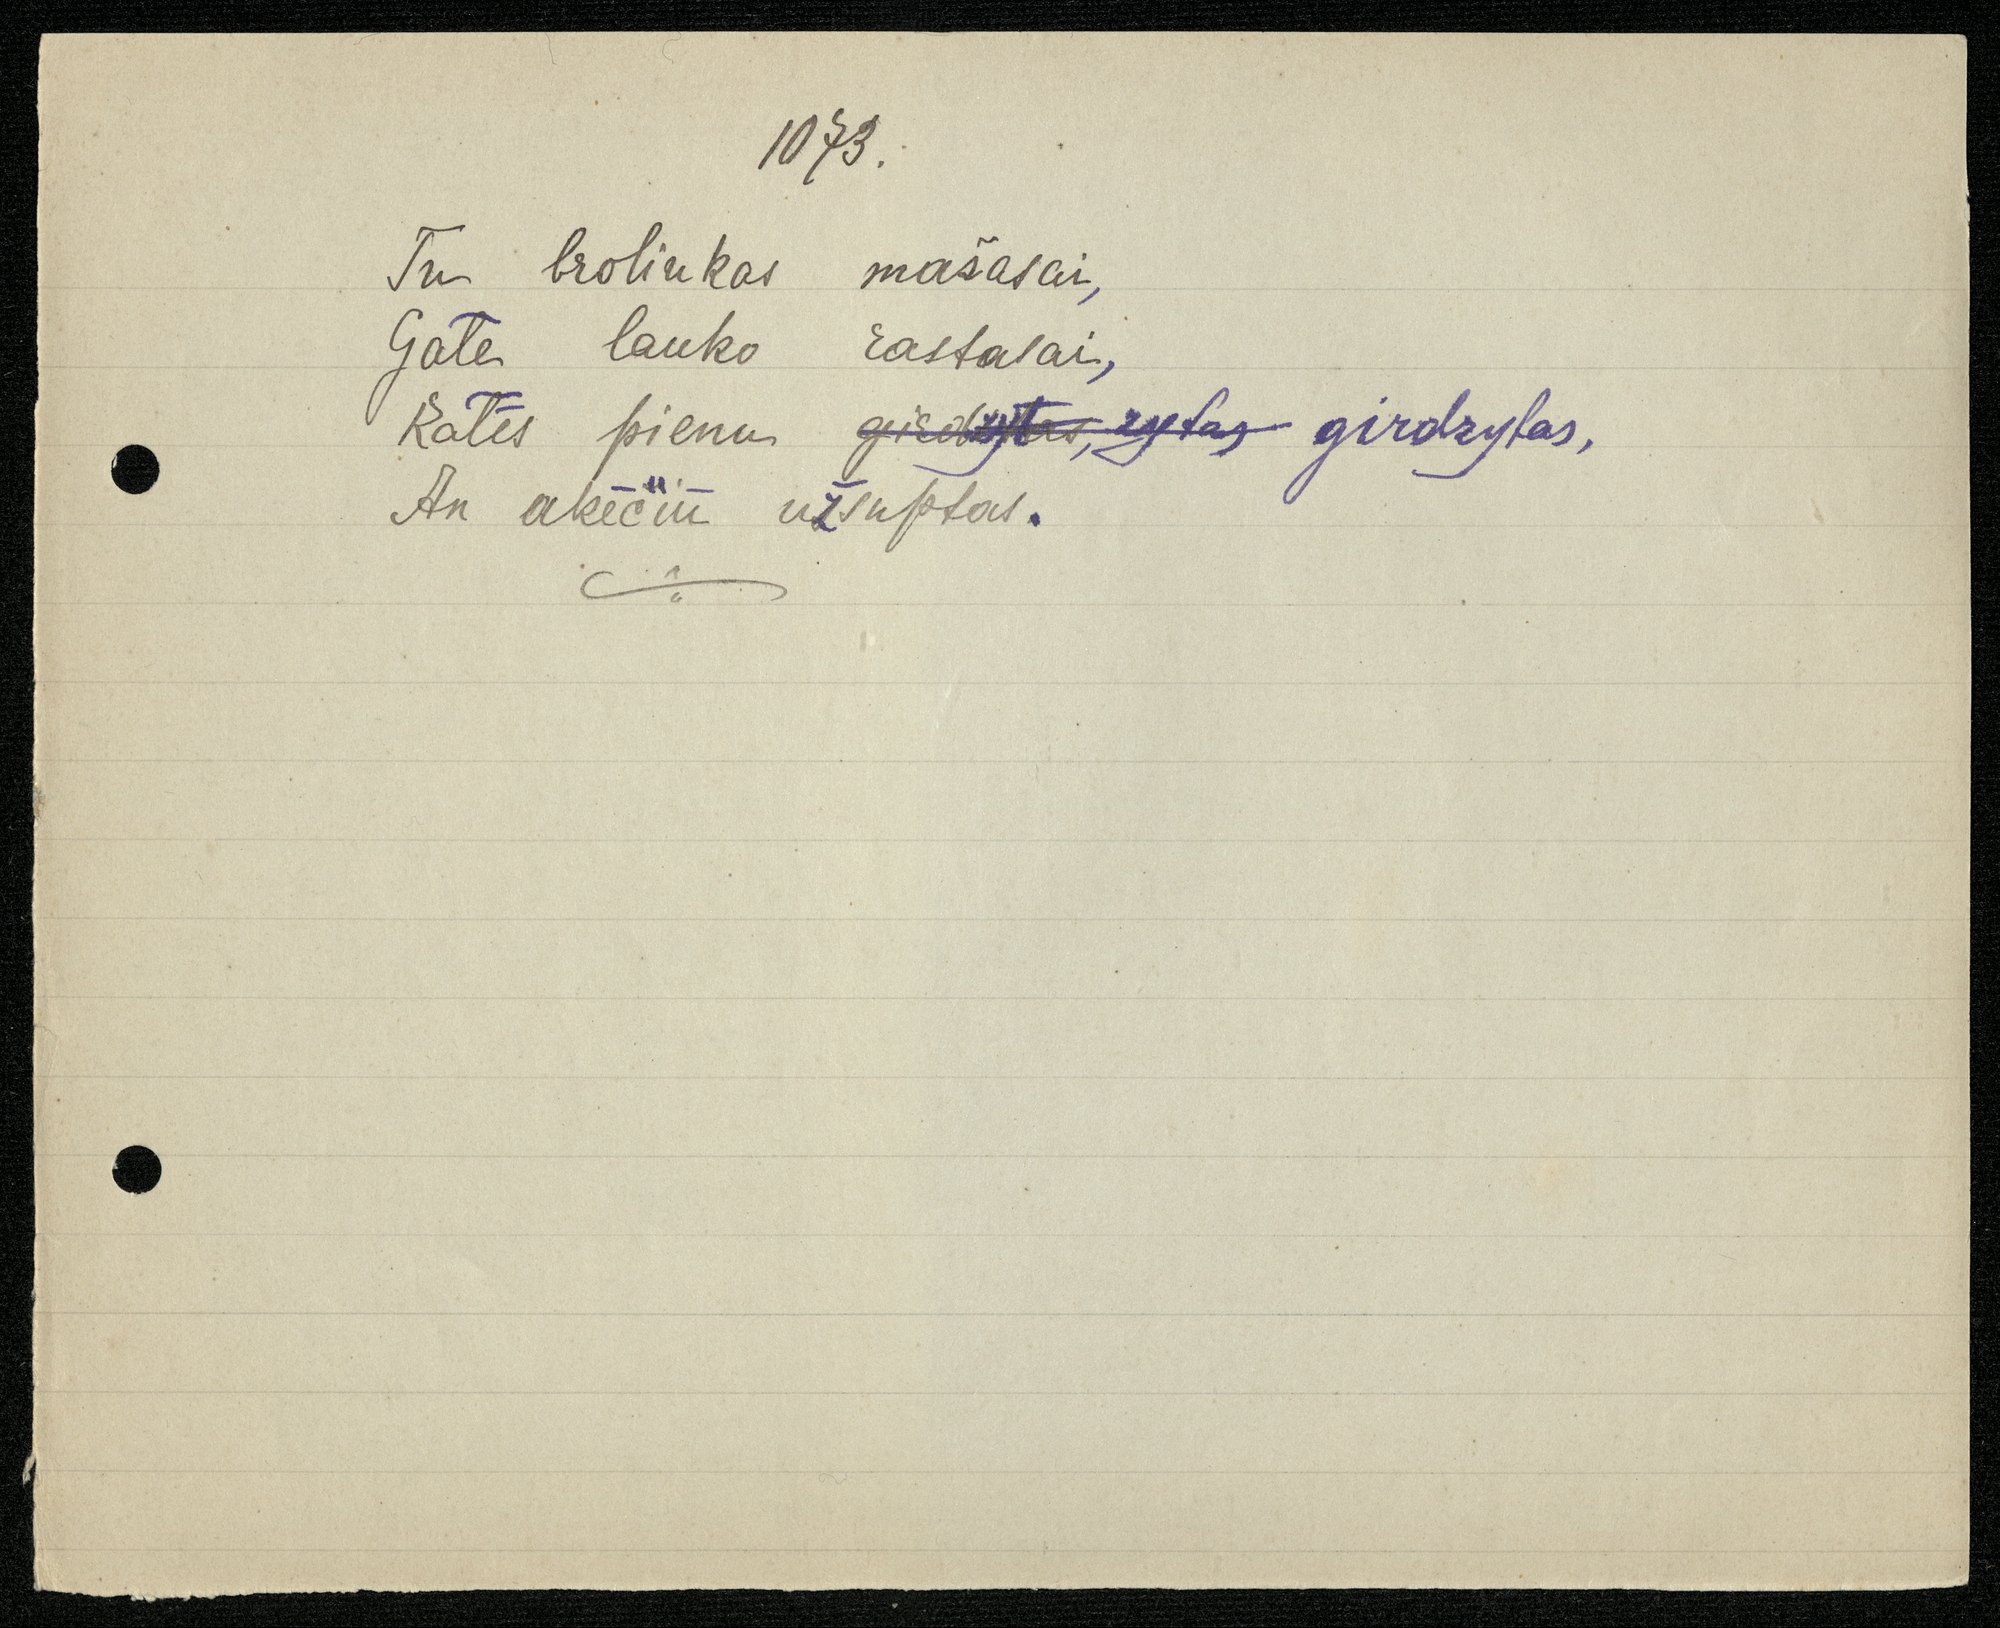 1073.
Tu broliukas mašasai,
Gale lauko rastasai,
Katės pienu girdzytas, zytas girdzytas,
An akėčių užsuptas.